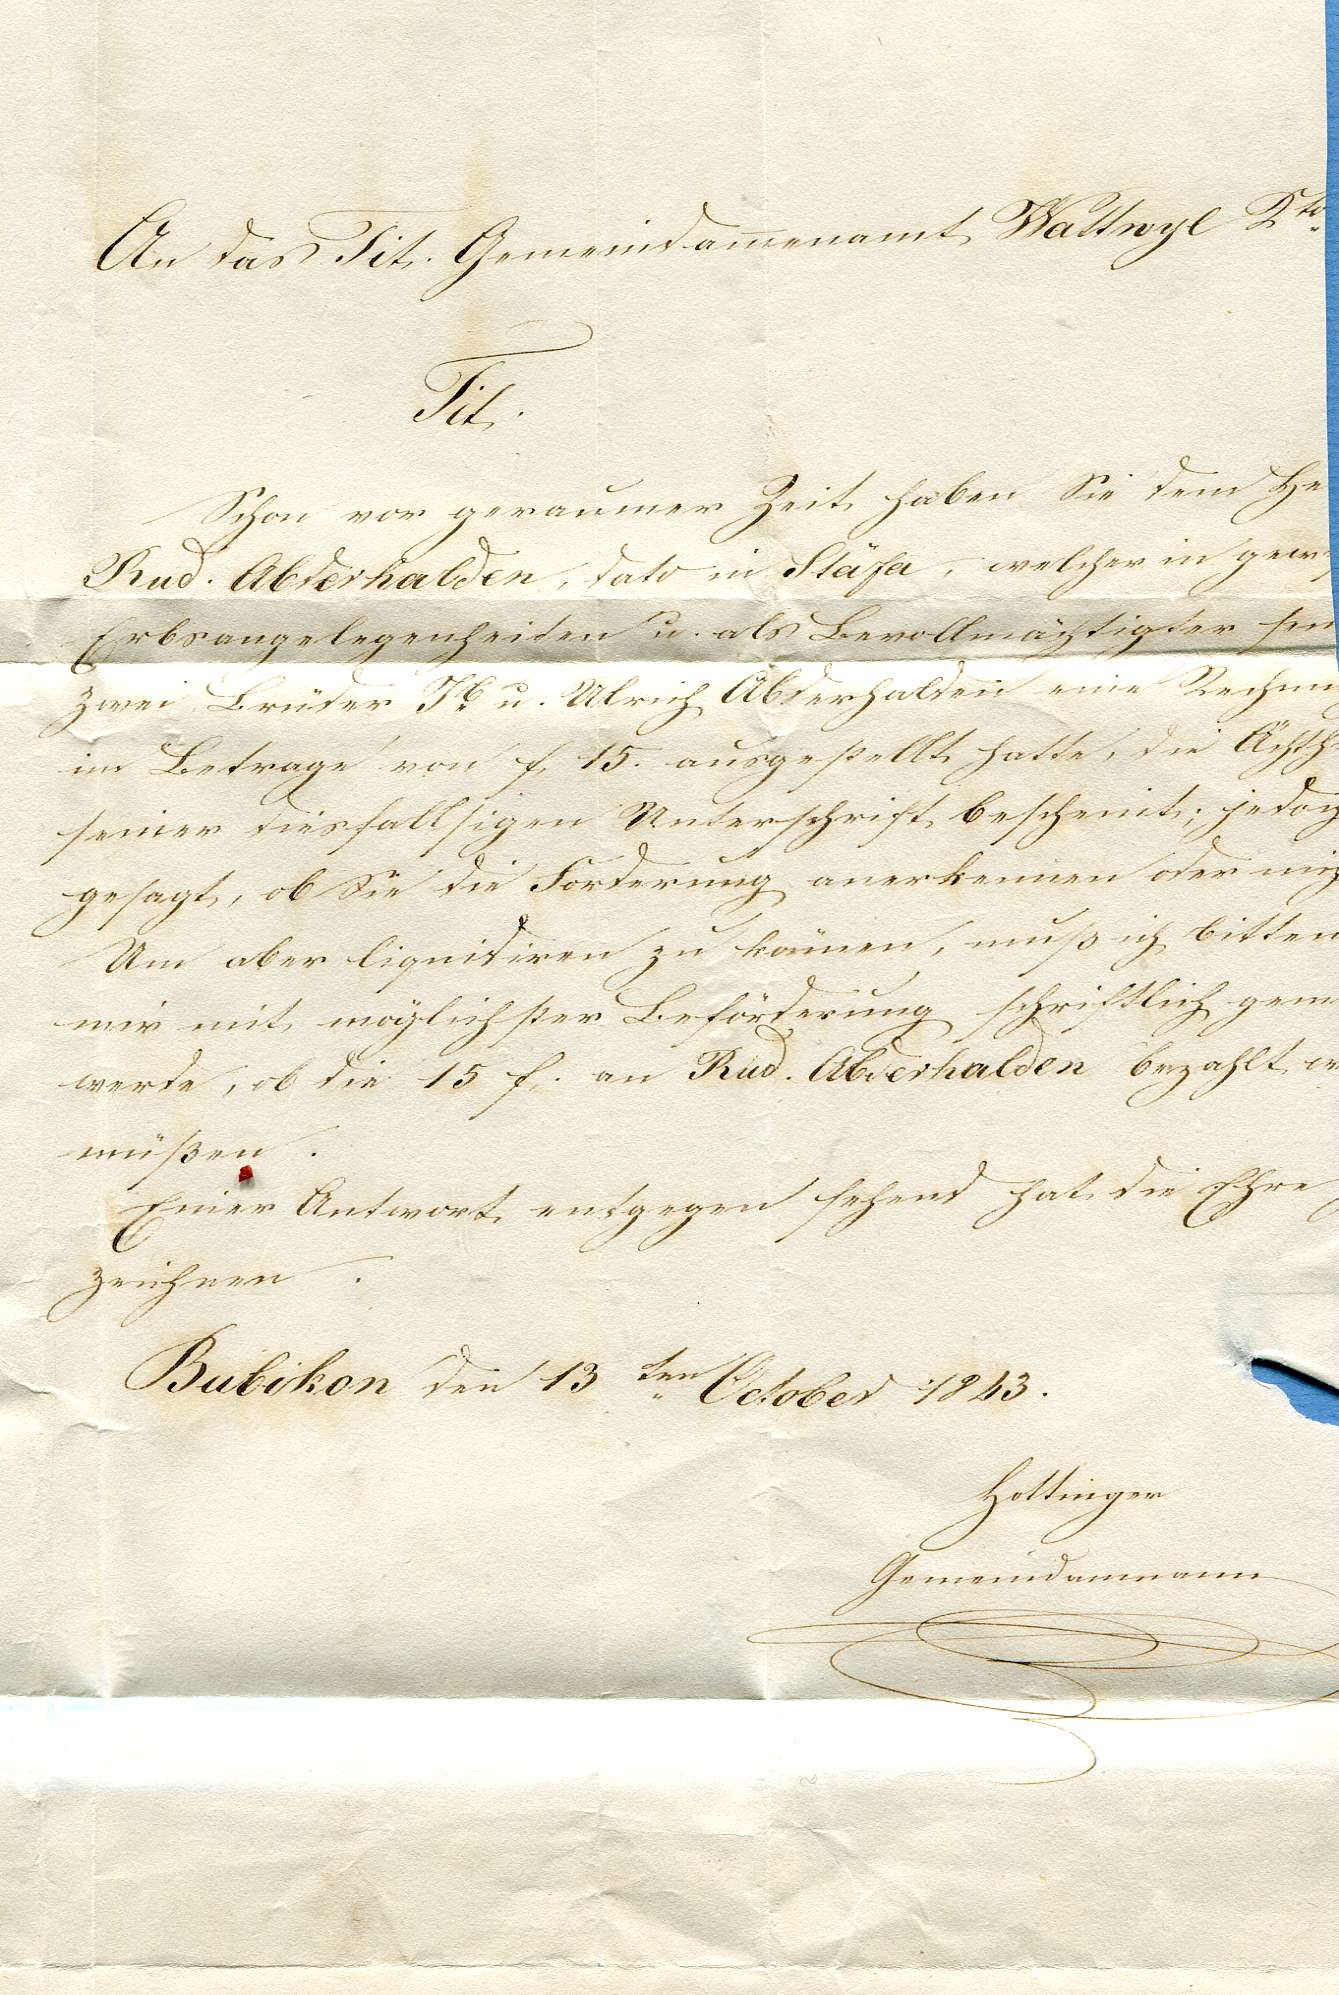 An das Tit. Gemeindammenamt Wattwyl Kto.
Tit.
Schon vor geraumer Zeit haben Sie dem He
Rud. Abderhalden, dato in Stäfa, welcher in gew
Erbsangelegenheiten u. als Bevollmächtigter sei
zwei Brüder Jb. u. Ulrich Abderhalden eine Rechnu
im Betrage von f. 15. ausgestellt hatte, die Ächth
seiner diesfallsigen Unterschrift bescheint; jedoch
gesagt, ob Sie die Forderung anerkennen oder nich
Um aber liquidiren zu können, muß ich bitten
mir mit möglichster Beförderung schriftlich gem
werde, ob die 15 f. an Rud. Abderhalden bezahlt we
müßen.
Einer Antwort entgegen sehend hat die Ehre
zeichnen.
Bubikon den 13ten October 1843.
Hottinger
Gemeindammann